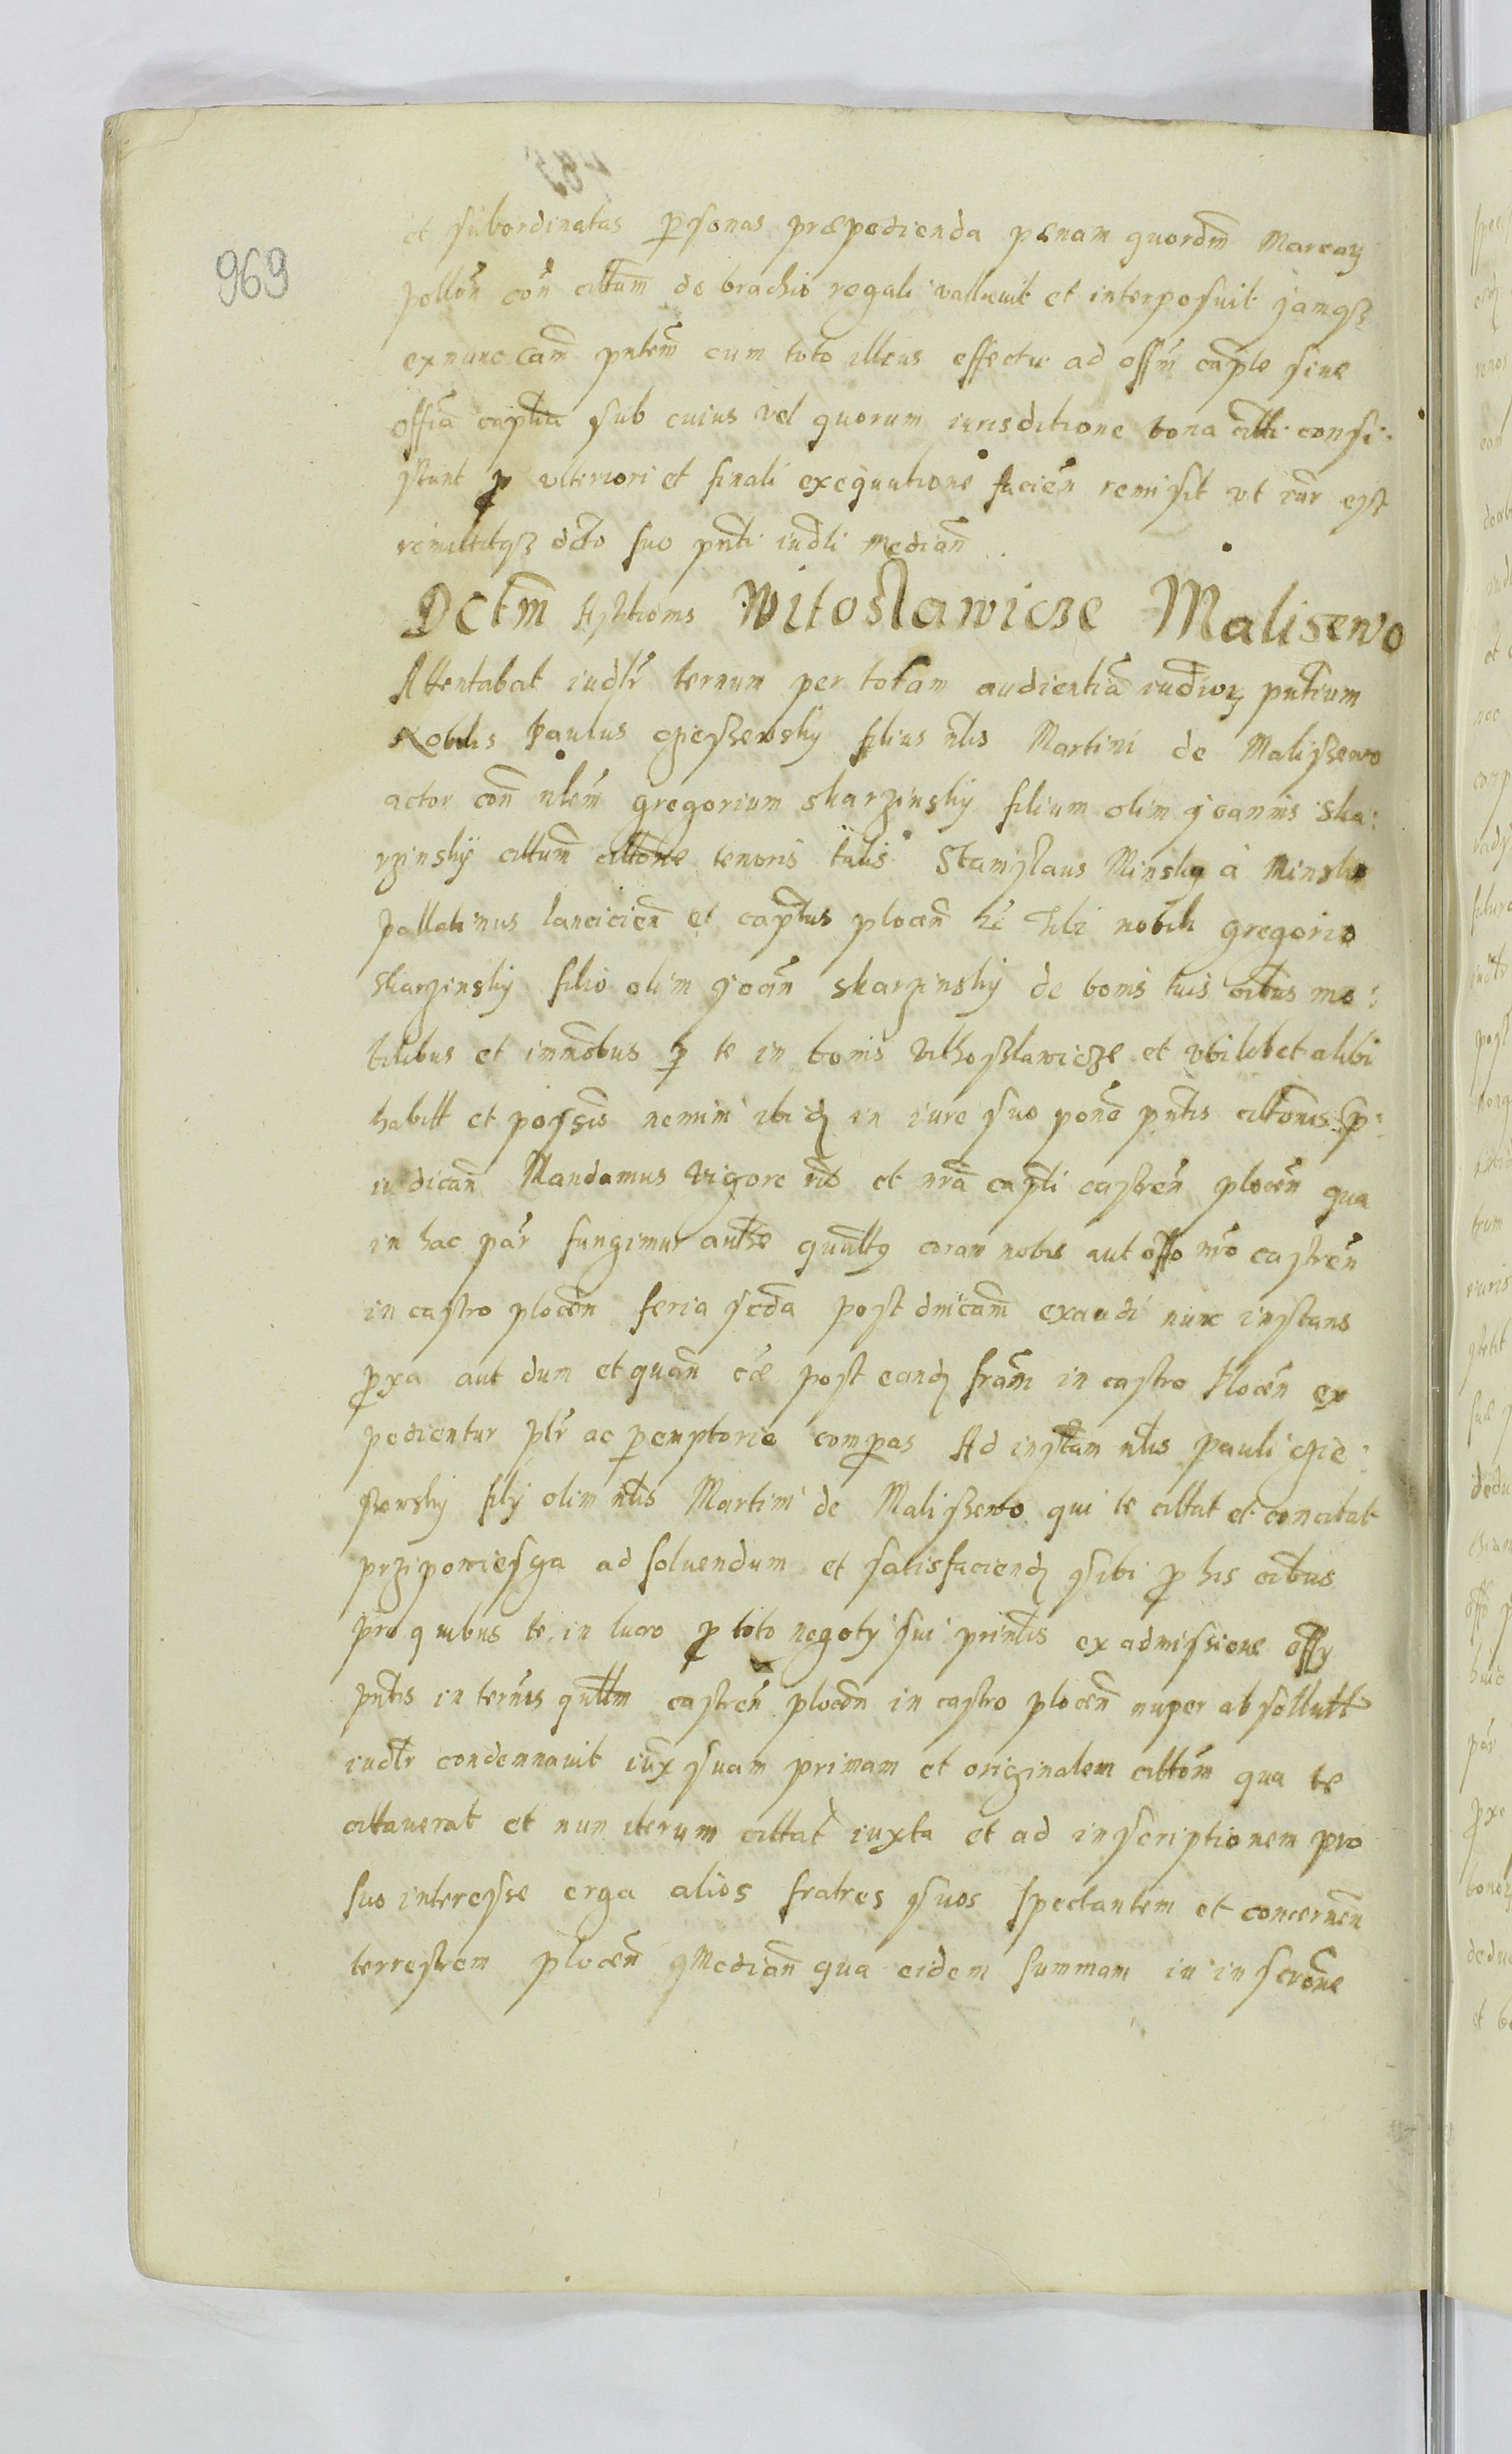 969
et subordinatas psonas præpedienda pęnam quordm Marcay
pollōn con cittum de brachio regali valluuit et interposuit jamqз
exnunc cam pntem cum toto illius effectu ad offm captle siue
offia captlia sub cuius vel quorum iurisditione bona citti consi:
stunt p vlteriori et finali exequutione facień remisit vt iur est
remittitqз dcto suo pnti iudli median
Dctm Witoslawicze Malisewo
Attentabat iudlr ternum per totam audientia iudior pntium
Nobilis Paulus cpiessewsky filius nlis Martini de Malissewo
actor con nlem gregorium skarzinsky filium olim joannis ska:
rzinsky cittum cittone tenoris talis Stanislaus Minsky a Minsko
Pallatinus lancicien et captus plocen Tibi nobili gregorio
Skarzinsky filio olim joan skarzinsky de bonis tuis oibus mo:
bilibus et immobus p te in bonis Vithosslawicze et vbilibet alibi
habitt et possis nemini ibid in iure suo pone pntis cittonis p:
iudican Mandamus vigore et nra capti castren plocen qua
in hac par fungimur authe qualtq coram nobis aut offo nro castren
in castro plocen feria scda post dnicam exaudi nunc instans
pxa aut dum et quan cæ post eand fram in castro Plocen ex
pedientur plr ac pemptorie compas Ad instam nlis Pauli cpie:
ssewsky fily olim nlis Martini de Malissewo qui te cittat et concitat
przipowiesga ad soluendum et satisfaciend sibi p his oibus
pro quibus te in lucro p toto negoty sui prinlis ex admissione offy
pntis in termis castren plocen in castro plocen nuper absollutt
iudlr condemnauit iux suam primam et originalem cittom qua te
cittauerat et nun iterum cittat iuxta et ad inscriptionem pro
suo interesse erga alios fratres suos spectantem et concernen
terrestrem plocen qMedian qua eidem summam in inscrone